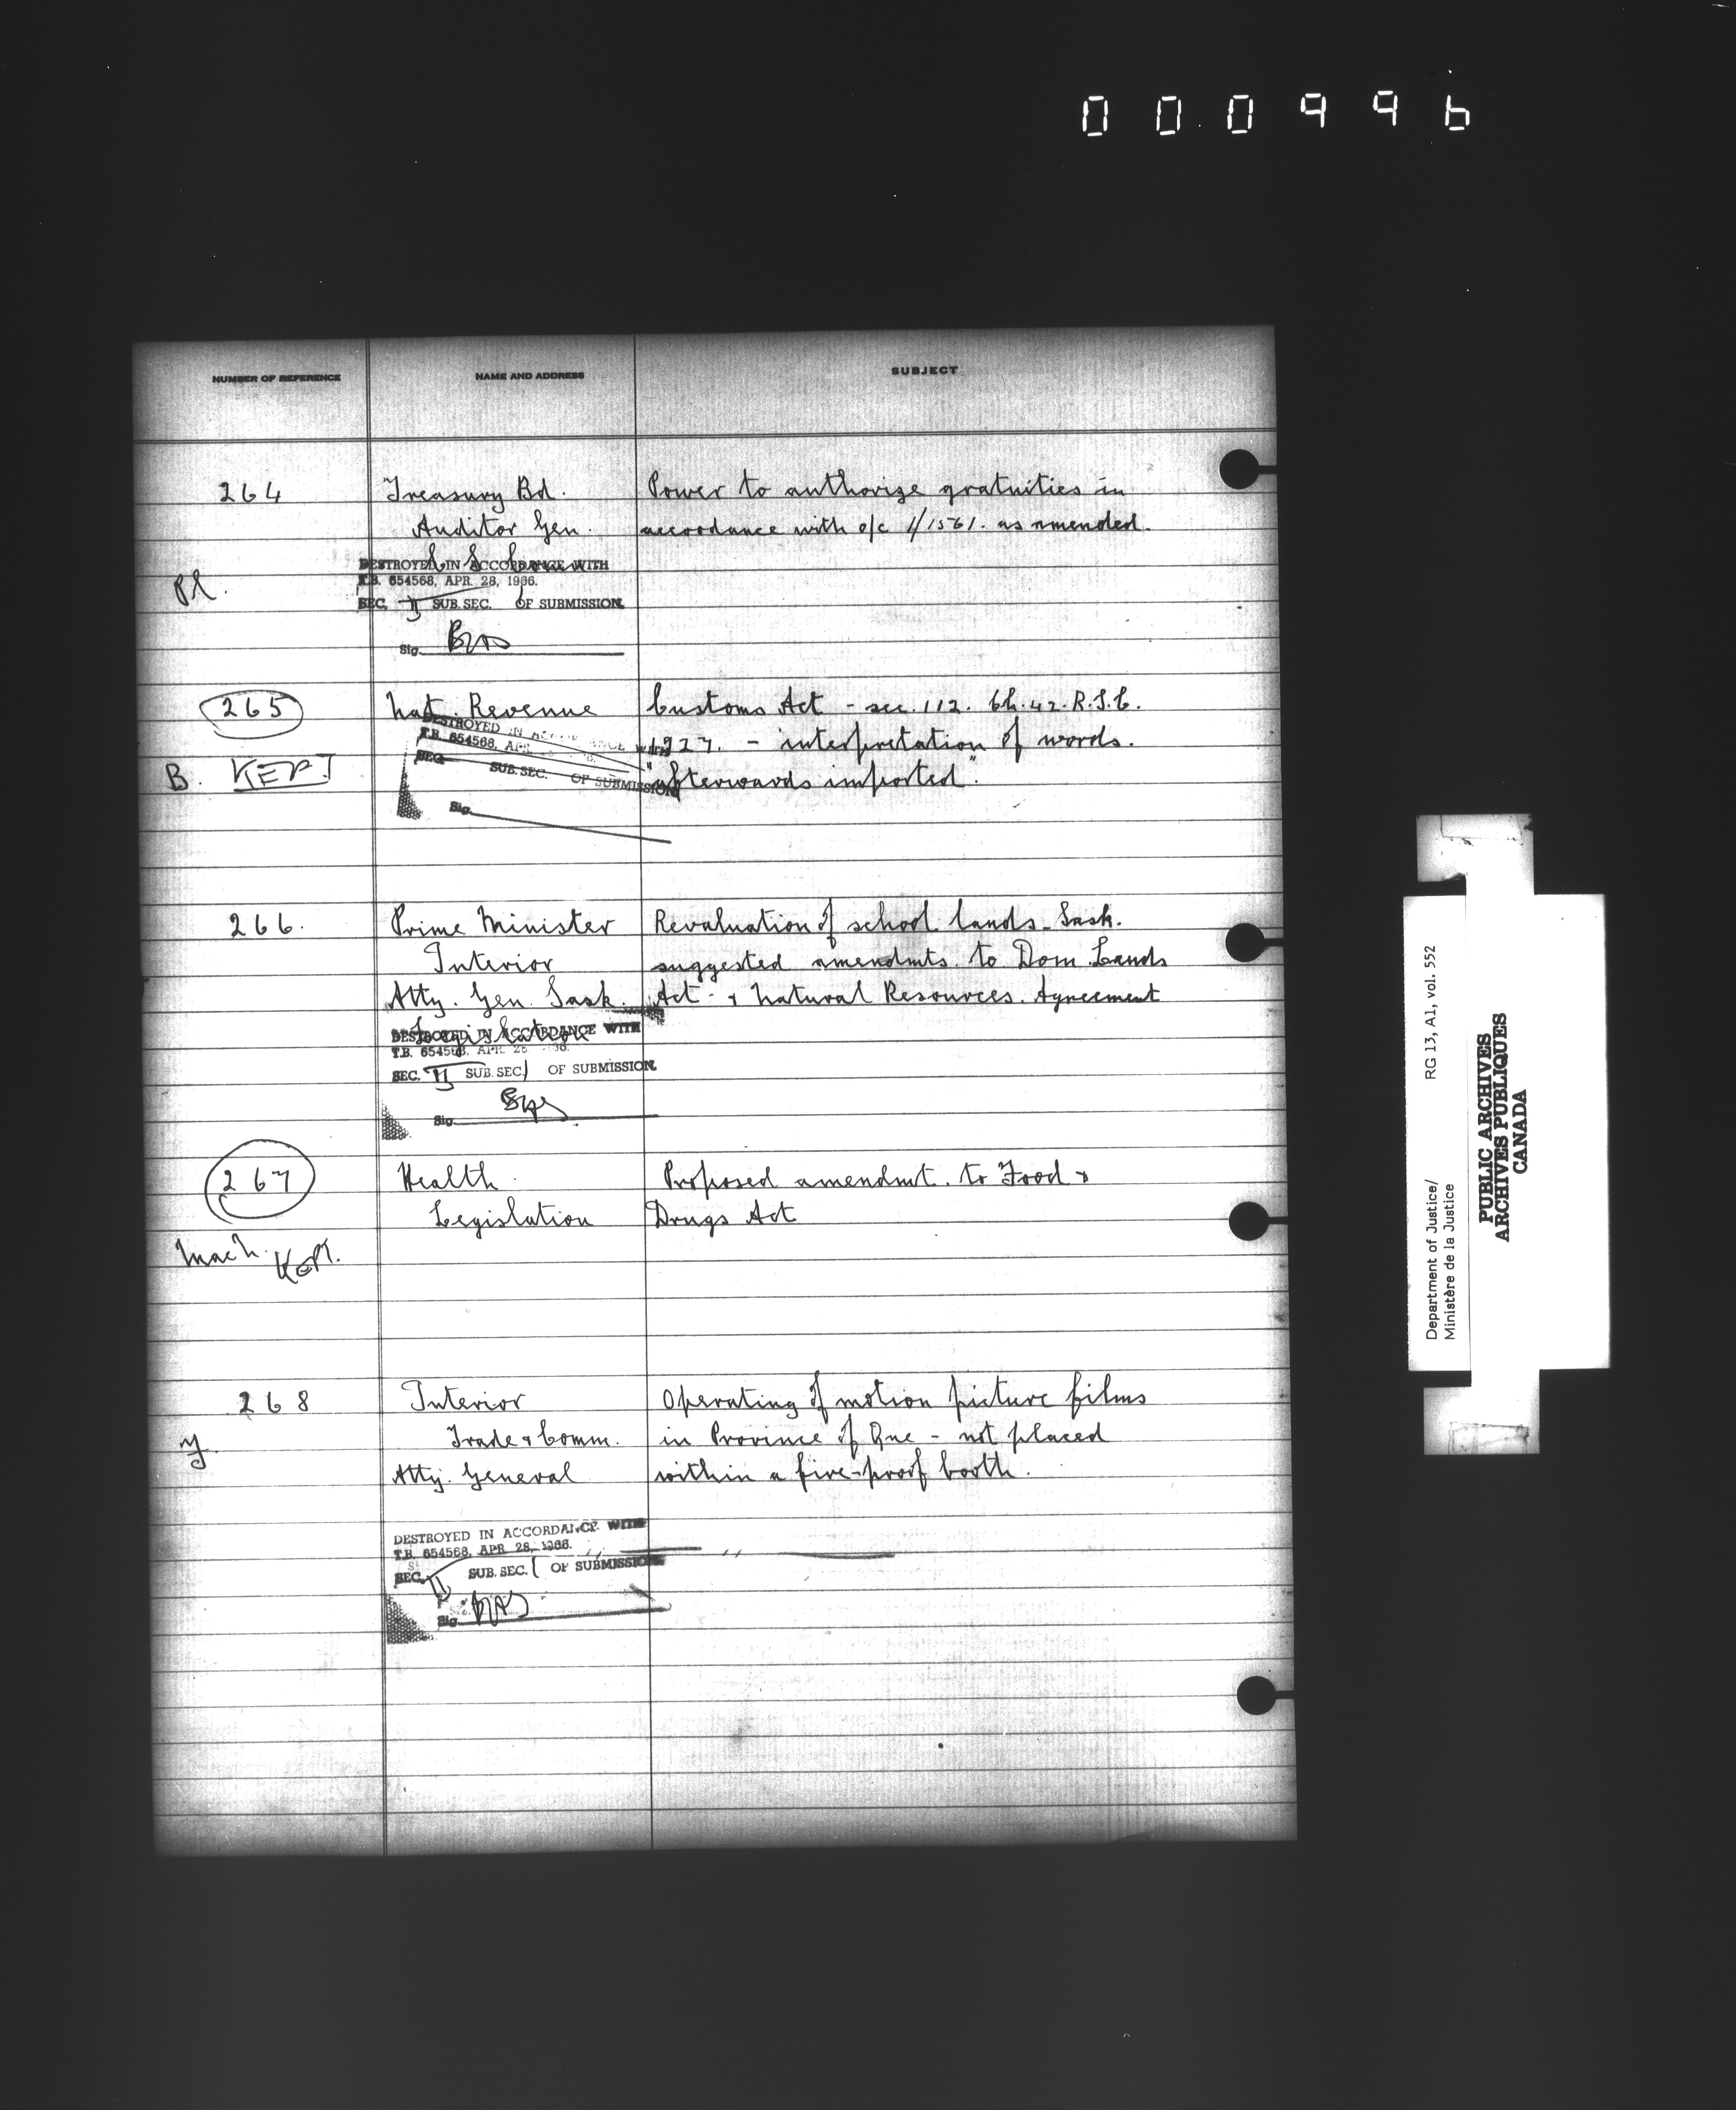 000996
NUMBER OF REFERENCE NAME AND ADDRESS SUBJECT
264 Treasury Bd. Power to authorize gratuities in
Auditor Gen. accordance with o/c 1/1561. as amended.
DESTROYED IN ACCORDANCE WITH
Pl. T.B. 654568, APR. 28, 1966.
SEC. II SUB. SEC. OF SUBMISSION
Sig.
265 Nat. Revenue Customs Act - sec. 112. Ch. 42. R.S.C.
DESTROYED IN WITH
T.B. 654568, APR 1927. - interpretation of words.
B. KEPT "afterwards imported".
SEC. SUB. SEC. OF SUBMISSION
Sig.
266. Prime Minister Revaluation of school lands - Sask.
Interior suggested amendmts. to Dom. Lands
Atty. Gen. Sask. Act - & Natural Resources. Agreement
Legislation
DESTROYED IN ACCORDANCE WITH
T.B. 654568, APR 28
SEC. II SUB. SEC. OF SUBMISSION
Sig.
267 Health Proposed amendmt. to Food &
Legislation Drugs Act
MacN. Kept.
268 Interior Operating of motion picture films
Trade & Comm. in Province of Que - not placed
Y. Atty. General within a fire-proof booth.
DESTROYED IN ACCORDANCE WITH
T.B. 654568, APR 28, 1966.
SEC. II SUB. SEC. OF SUBMISSION
Sig.
Department of Justice/ RG 13, A1, vol. 552
Ministère de la Justice
PUBLIC ARCHIVES
ARCHIVES PUBLIQUES
CANADA